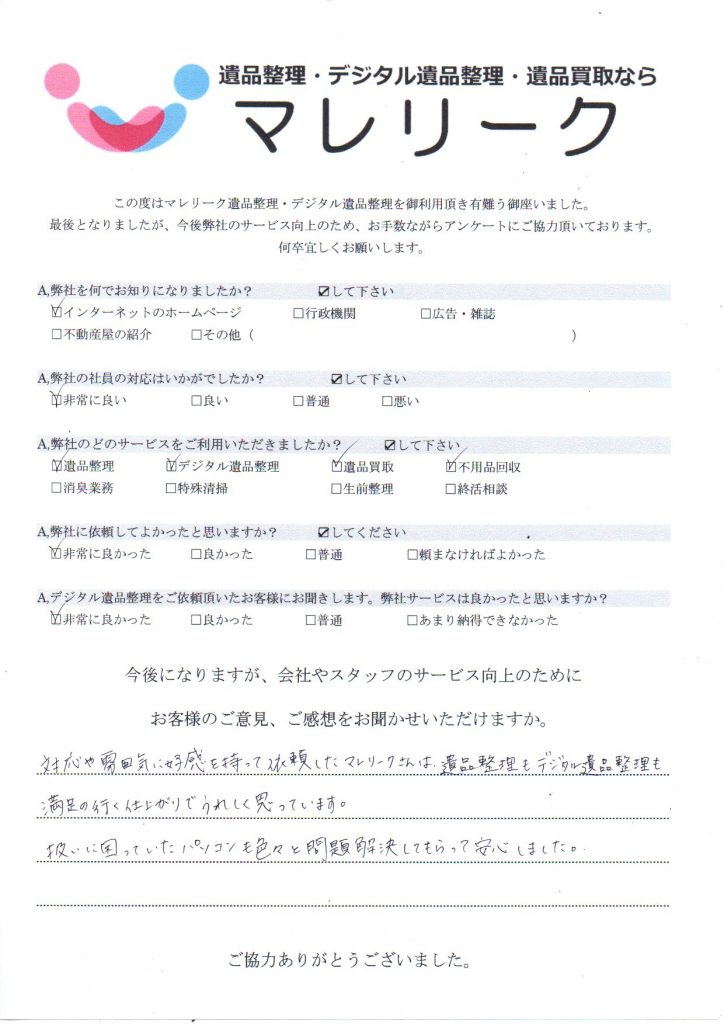 遺品整理・デジタル遺品整理・遺品買取なら
マレリーク
この度はマレリーク遺品整理・デジタル遺品整理を御利用頂き有難う御座いました。
最後となりましたが、今後弊社のサービス向上のため、お手数ながらアンケートにご協力頂いております。
何卒宜しくお願いします。
A,弊社を何でお知りになりましたか？ ☑して下さい
☑インターネットのホームページ □行政機関 □広告・雑誌
□不動産屋の紹介 □その他（ ）
A,弊社の社員の対応はいかがでしたか？ ☑して下さい
☑非常に良い □良い □普通 □悪い
A,弊社のどのサービスをご利用いただきましたか？ ☑して下さい
☑遺品整理 ☑デジタル遺品整理 ☑遺品買取 ☑不用品回収
□消臭業務 □特殊清掃 □生前整理 □終活相談
A,弊社に依頼してよかったと思いますか？ ☑してください
☑非常に良かった □良かった □普通 □頼まなければよかった
A,デジタル遺品整理をご依頼頂いたお客様にお聞きします。弊社サービスは良かったと思いますか？
☑非常に良かった □良かった □普通 □あまり納得できなかった
今後になりますが、会社やスタッフのサービス向上のために
お客様のご意見、ご感想をお聞かせいただけますか。
対応や雰囲気に好感を持って依頼したマレリークさんは、遺品整理もデジタル遺品整理も
満足の行く仕上がりでうれしく思っています。
扱いに困っていたパソコンも色々と問題解決してもらって安心しました。
ご協力ありがとうございました。